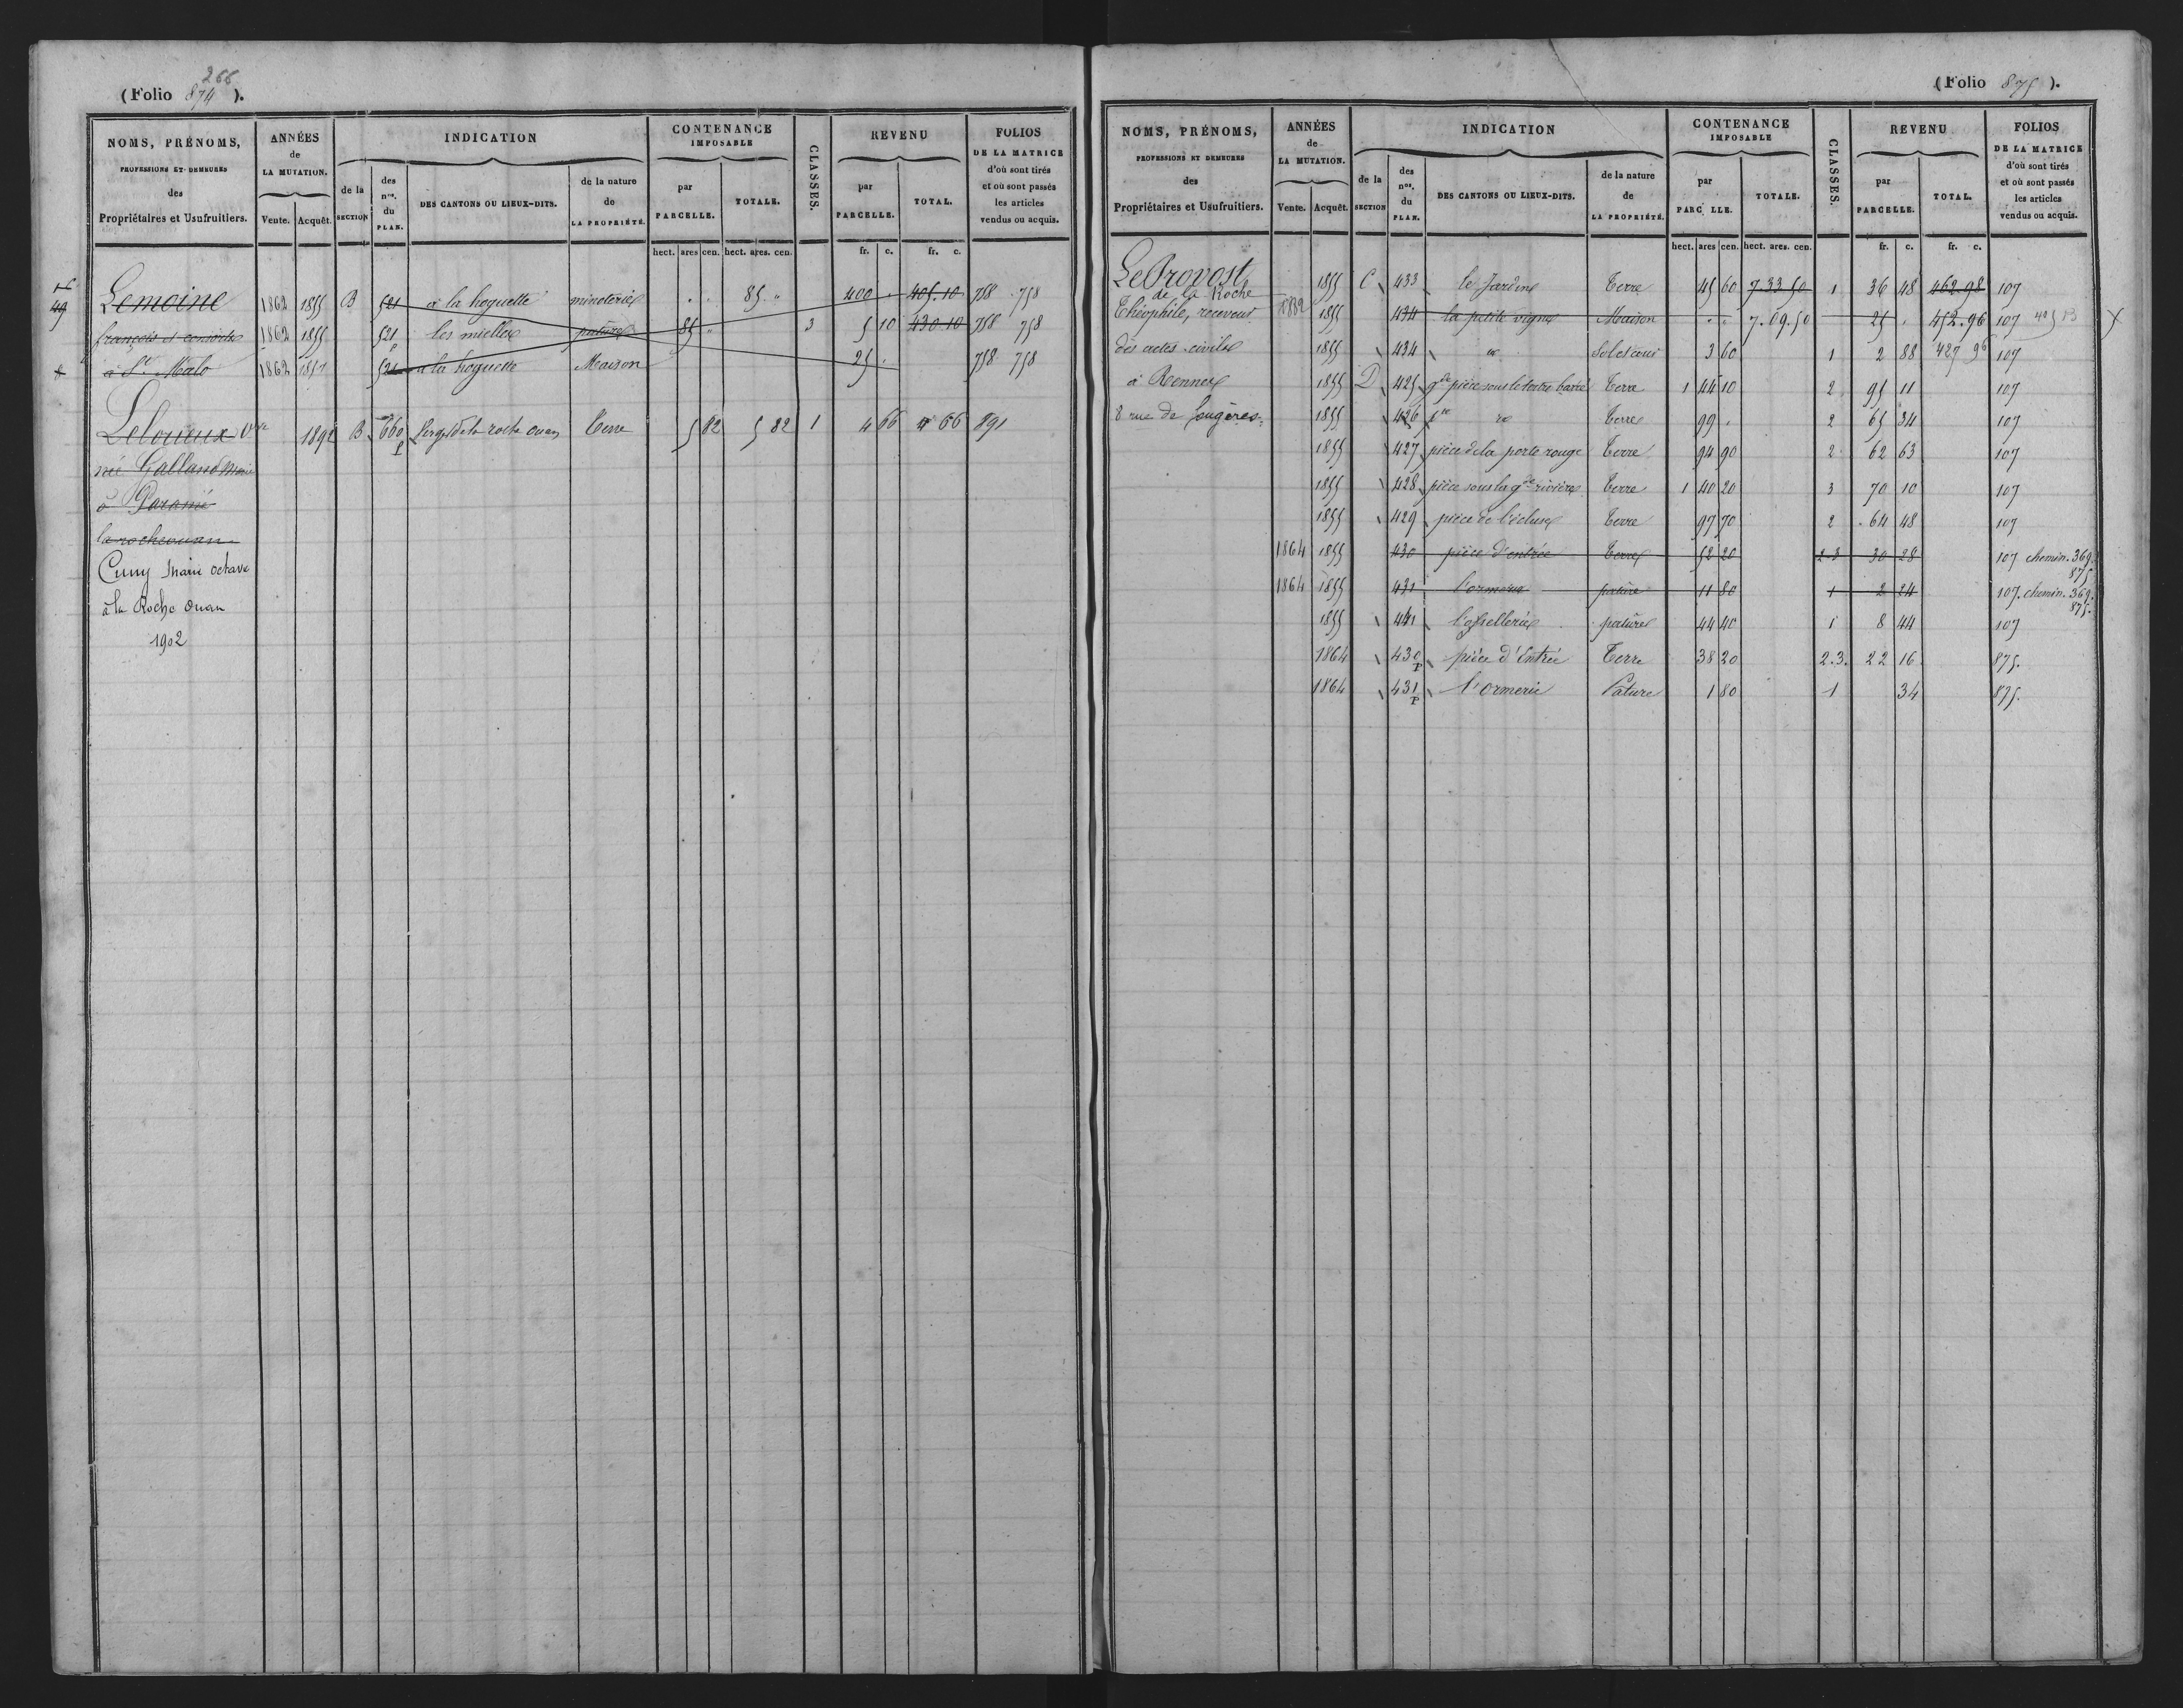 266
(Folio 874 ).
NOMS, PRÉNOMS,
PROFESSIONS ET DEMEURES
des
Propriétaires et Usufruitiers.
ANNÉES
de
LA MUTATION.
Vente. Acquêt.
INDICATION
de la
SECTION
des
nos.
du
PLAN.
DES CANTONS OU LIEUX-DITS.
de la nature
de
LA PROPRIÉTÉ.
CONTENANCE
IMPOSABLE
par
PARCELLE.
TOTALE.
CLASSES.
REVENU
par
PARCELLE.
TOTAL.
FOLIOS
DE LA MATRICE
d'où sont tirés
et où sont passés
les articles
vendus ou acquis.
hect. ares cen. hect. ares. cen. fr. c. fr. c.
Lemoine 1862 1855 B 521 à la hoguette minoterie . . 85 " 400 . 405.10 758 758
françois et consorts 1862 1855 521 p les mielles pature 85 " 3 5 10 430.10 758 758
à St. Malo 1862 1857 521 à la hoguette Maison 25 . 758 758
Leloueux Vve 1892 B 660 p Terre 5 82 5 82 1 4 66 4 66 891
née Galland Marie
à Paramé
larocheouan
Cuny Marie octave
à la Roche Ouan
1902
(Folio 875 ).
NOMS, PRÉNOMS,
PROFESSIONS ET DEMEURES
des
Propriétaires et Usufruitiers.
ANNÉES
de
LA MUTATION.
Vente. Acquêt.
INDICATION
de la
SECTION
des
nos.
du
PLAN.
DES CANTONS OU LIEUX-DITS.
de la nature
de
LA PROPRIÉTÉ.
CONTENANCE
IMPOSABLE
par
PARC LLE.
TOTALE.
CLASSES.
REVENU
par
PARCELLE.
TOTAL.
FOLIOS
DE LA MATRICE
d'où sont tirés
et où sont passés
les articles
vendus ou acquis.
hect. ares cen. hect. ares. cen. fr. c. fr. c.
Le Provost 1855 C 433 le Jardin Terre 45 60 7.33 50 1 36 48 462.98 107
de la Roche
Théophile, receveur 1882 1855 434 la petite vigne Maison . . 7.09.50 25 . 452.96 107
des actes civils 1855 434 do Sol et cour 3 60 1 2 88 427 96 107
à Rennes 1855 D 425 gde pièce sous le tertre barré Terre 1 44 10 2 95 11 107
8 rue de fougères 1855 426 pte do Terre 99 . 2 65 34 107
1855 427 pièce de la porte rouge Terre 94 90 2 62 63 107
1855 428 pièce sous la gde rivière Terre 1 40 20 3 70 10 107
1855 429 pièce de l'écluse Terre 97 70 2 64 48 107
1864 1855 430 pièce d'entrée Terre 52 20 2-3 30 28 107 chemin. 369.
875.
1864 1855 431 l'ormerie pature 11 80 1 2 24 107. chemin. 369.
875.
1855 441 pature 44 40 1 8 44 107
1864 430 p pièce d'Entrée Terre 38 20 2.3. 22 16 875.
1864 431 p l'ormerie Pature 1 80 1 34 875.